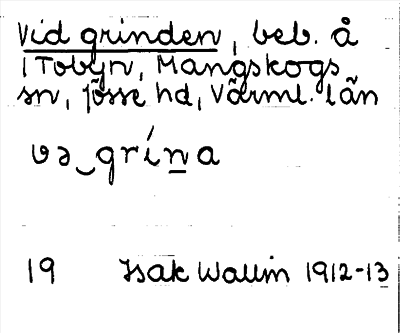 Vid grinden, beb. å
i Tobyn, Mangskogs
sn, Jösse hd, Värml. län
və‿grína
19 Isak Wallin 1912-13